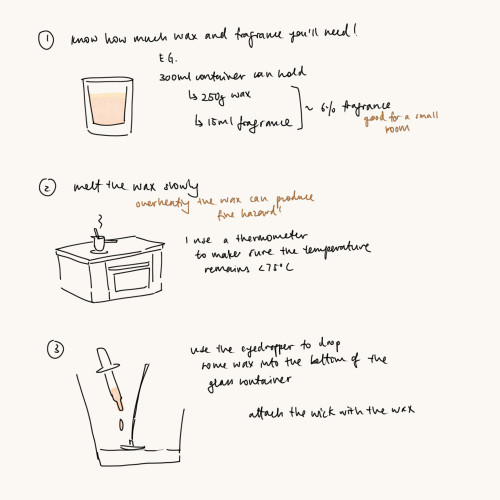 1 know how much wax and fragrance you'll need!
E.G.
300ml container can hold
↳ 250g wax
↳ 15ml fragrance
~ 6% fragrance
good for a small
room
2 melt the wax slowly
overheating the wax can produce
fire hazard!
I use a thermometer
to make sure the temperature
remains <75°C
3 use the eyedropper to drop
some wax into the bottom of the
glass container
attach the wick with the wax